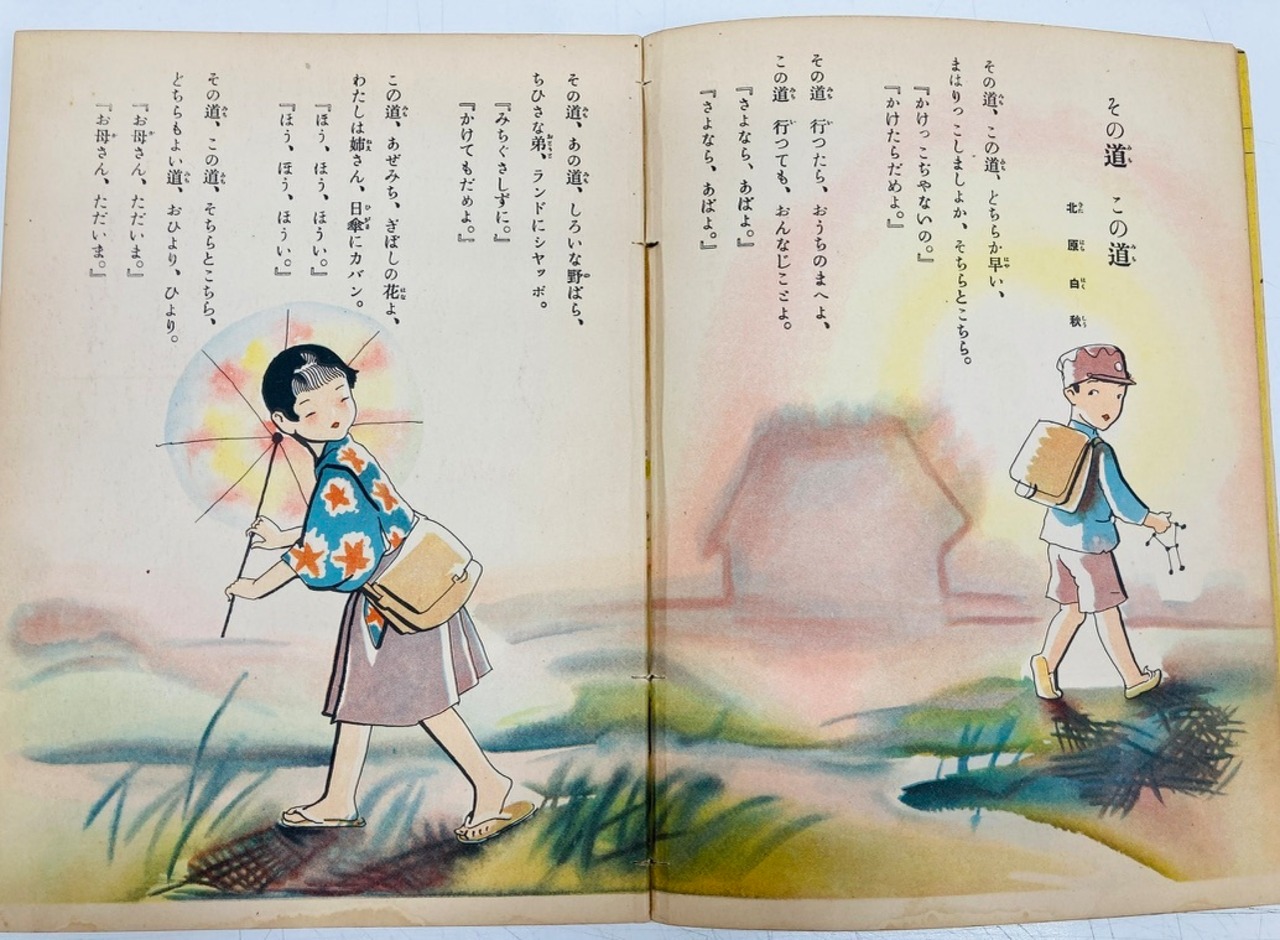 その道 この道
北原白秋
その道、この道、どちらか早い、
まはりっこしましよか、そちらとこちら。
『かけっこぢやないの。』
『かけたらだめよ。』
その道 行つたら、おうちのまへよ、
この道 行つても、おんなじことよ。
『さよなら、あばよ。』
『さよなら、あばよ。』
その道、あの道、しろいな野ばら、
ちひさな弟、ランドにシヤッポ。
『みちぐさしずに。』
『かけてもだめよ。』
この道、あぜみち、ぎぼしの花よ、
わたしは姉さん、日傘にカバン。
『ほう、ほう、ほうい。』
『ほう、ほう、ほうい。』
その道、この道、そちらとこちら、
どちらもよい道、おひより、ひより。
『お母さん、ただいま。』
『お母さん、ただいま。』